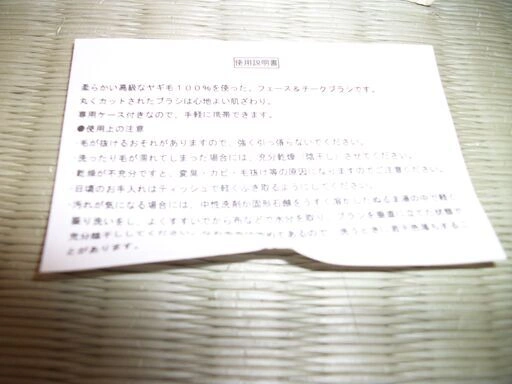 使用説明書
柔らかい高級なヤギ毛100%を使った、フェース&チークブラシです。
丸くカットされたブラシは心地よい肌ざわり。
専用ケース付きなので、手軽に携帯できます。
●使用上の注意
・毛が抜けるおそれがありますので、強く引っ張らないでください。
・洗ったり毛が濡れてしまった場合には、充分乾燥（陰干し）させてください。
・乾燥が不充分ですと、変臭・カビ・毛抜け等の原因になりますのでご注意ください。
・日頃のお手入れはティッシュで軽くふき取るようにしてください。
・汚れが気になる場合には、中性洗剤か固形石鹸をうすく溶かしたぬるま湯の中で軽く
振り洗いをし、よくすすいでから布などで水分を取り、ブラシを垂直に立てた状態で
充分陰干ししてください。 あるので、洗うときに若干色落ちするこ
とがあります。